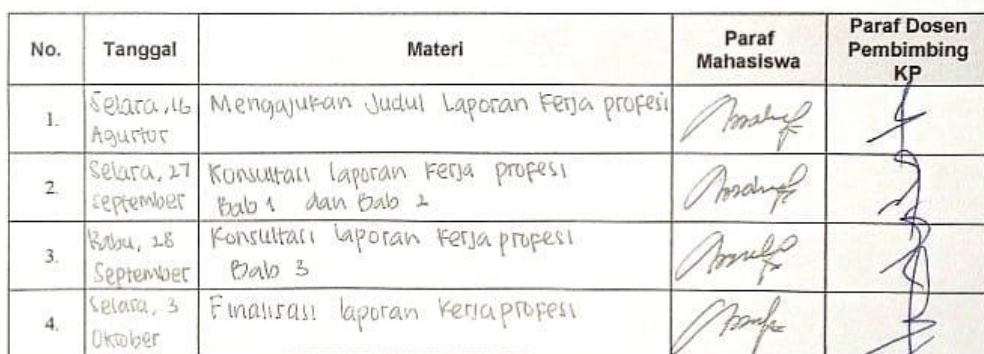 No. Tanggal Materi Paraf Mahasiswa Paraf Dosen Pembimbing KP
1. Selasa, 16 Agustus Mengajukan Judul Laporan Kerja profesi
2. Selasa, 27 September Konsultasi laporan kerja profesi
Bab 1 dan Bab 2
3. Rabu, 28 September Konsultasi laporan kerja profesi
Bab 3
4. Selasa, 3 Oktober Finalisasi laporan kerja profesi